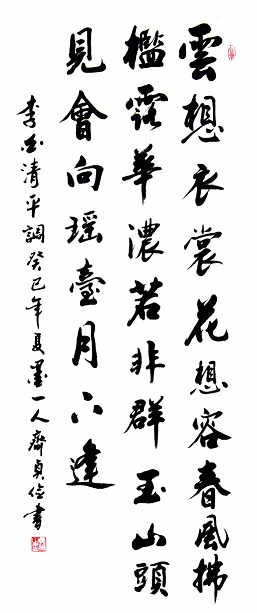 雲想衣裳花想容春風拂
檻露華濃若非群玉山頭
見會向瑶臺月下逢
李白清平調癸巳年夏墨一人齊貞俭書